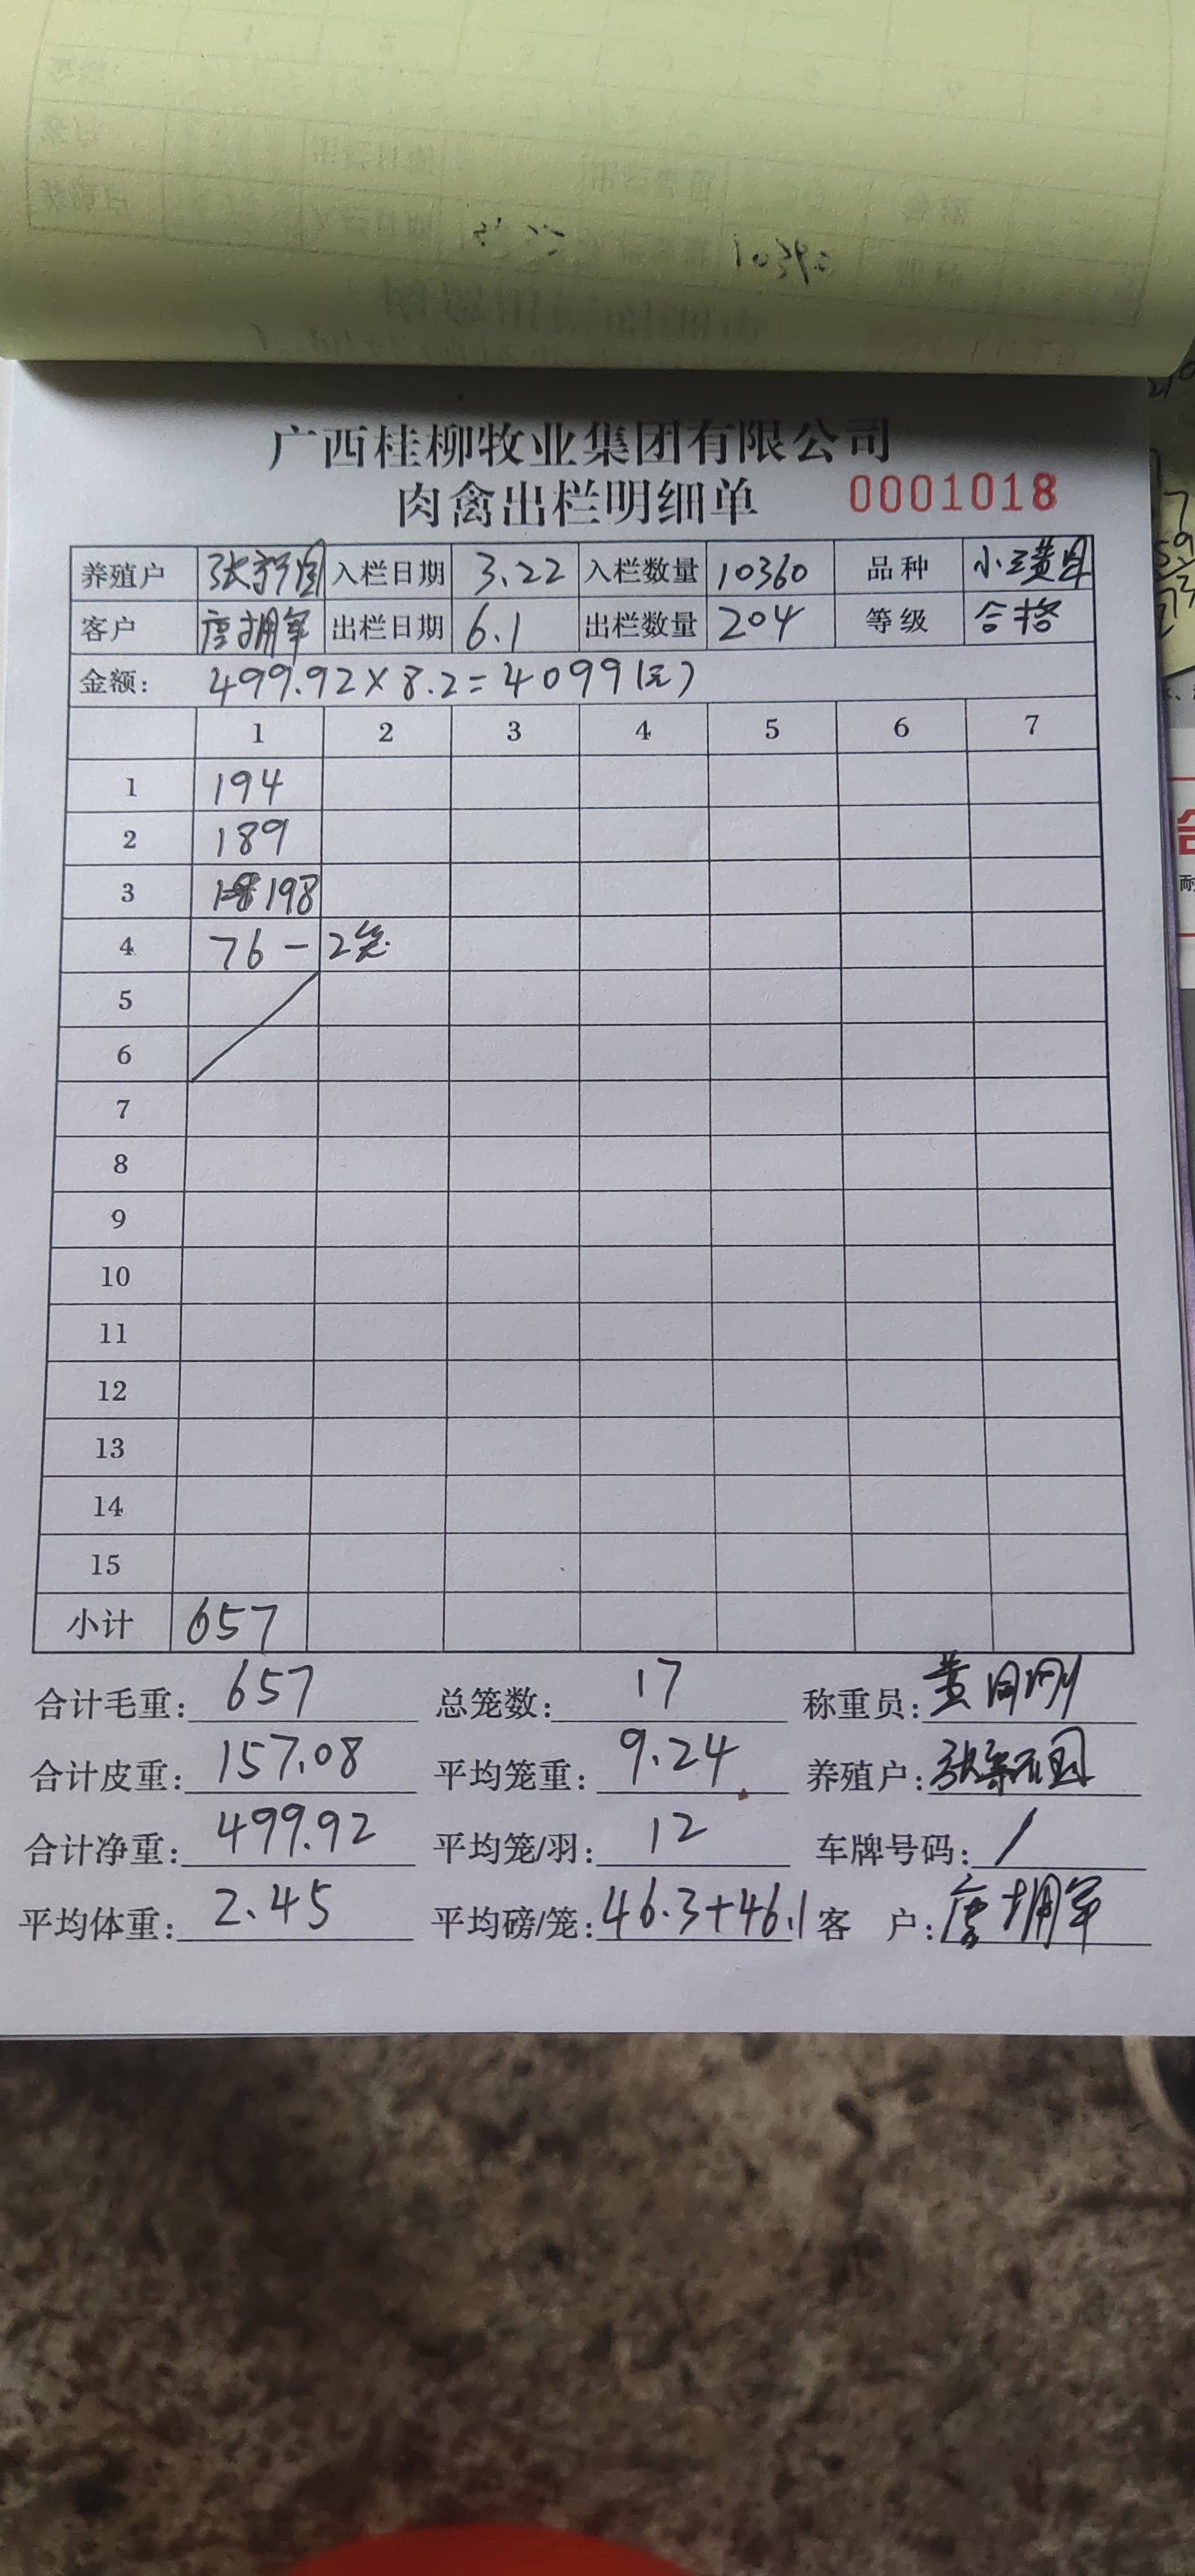 广西桂柳牧业集团有限公司
肉禽出栏明细单 0001018
养殖户 入栏日期 3.22 入栏数量 10360 品种 小三黄
客户 唐拥军 出栏日期 6.1 出栏数量 204 等级 合格
金额： 499.92×8.2=4099(元)
1 2 3 4 5 6 7
1 194
2 189
3 198
4 76 - 2笼
5
6
7
8
9
10
11
12
13
14
15
小计 657
合计毛重: 657 总笼数: 17 称重员: 黄刚
合计皮重: 157.08 平均笼重: 9.24 养殖户:
合计净重: 499.92 平均笼/羽: 12 车牌号码: /
平均体重: 2.45 平均磅/笼: 46.3+46.1 客 户: 唐拥军